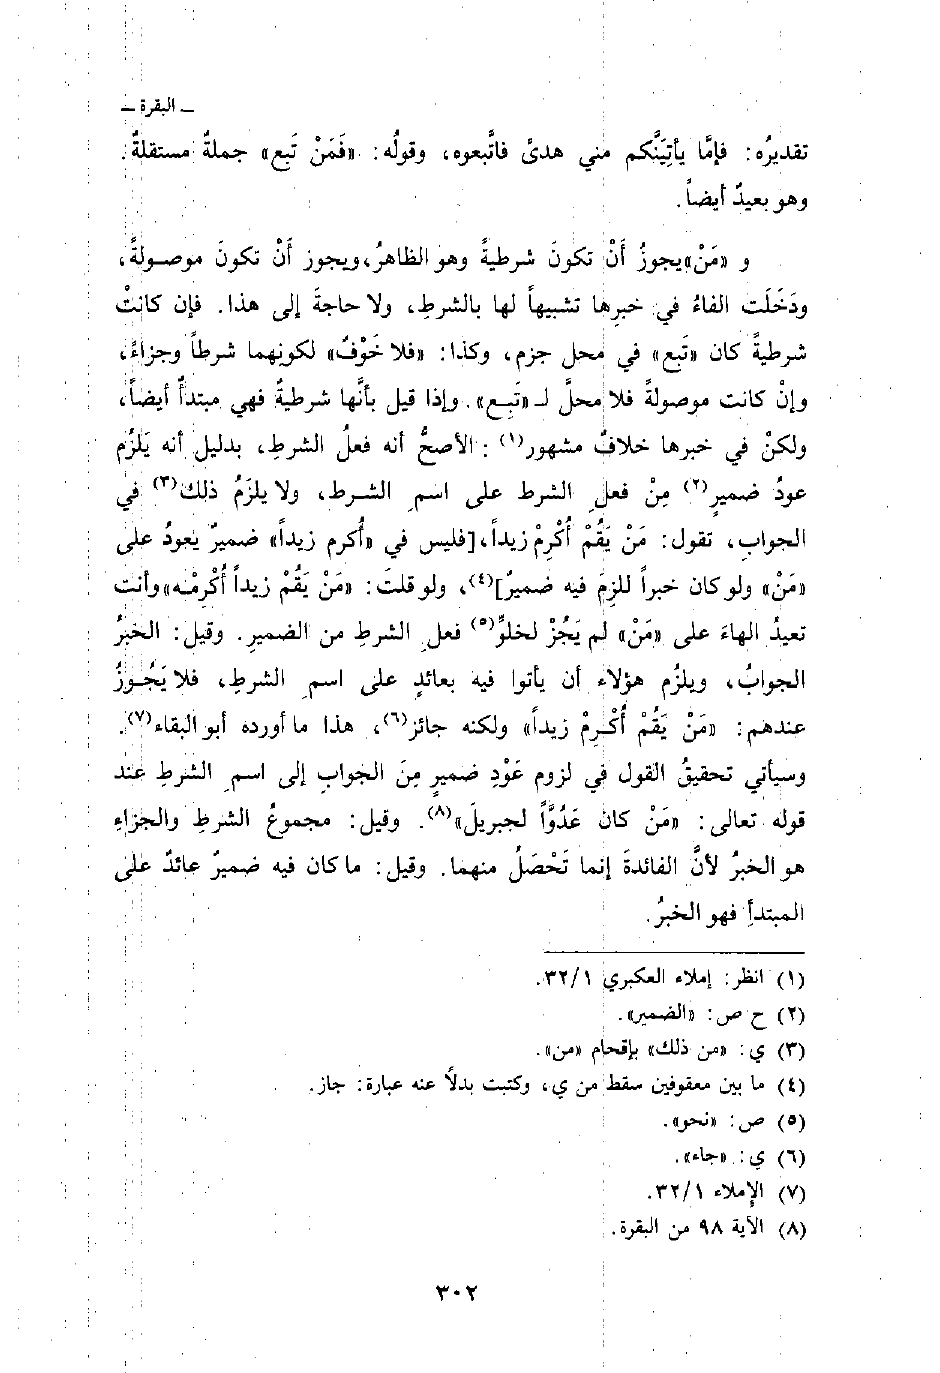 ـ البقرة ـ
تقديرُه: فإمَّا يأتِيَنَّكم مني هدىً فاتَّبعوه، وقولُه: «فَمَنْ تَبِع» جملةٌ مستقلةٌ.
وهو بعيدٌ أيضاً.
و «مَنْ» يجوزُ أَنْ تكونَ شرطيةً وهو الظاهرُ، ويجوز أَنْ تكونَ موصولةً،
ودَخَلَت الفاءُ في خبرِها تشبيهاً لها بالشرطِ، ولا حاجةَ إلى هذا. فإن كانَتْ
شرطيةً كان «تَبِع» في محل جزم، وكذا: «فلا خَوْفٌ» لكونِهما شرطاً وجزاءً،
وإنْ كانت موصولةً فلا محلَّ لـ «تَبِع». وإذا قيل بأنَّها شرطيةٌ فهي مبتدأٌ أيضاً،
ولكنْ في خبرها خلافٌ مشهور(١): الأصحُّ أنه فعلُ الشرطِ، بدليل أنه يَلْزَم
عودُ ضميرٍ(٢) مِنْ فعلِ الشرط على اسمِ الشرط، ولا يلزَمُ ذلك(٣) في
الجوابِ، تقول: مَنْ يَقُمْ أُكْرِمْ زيداً، [فليس في «أُكرم زيداً» ضميرٌ يَعودُ على
«مَنْ» ولو كان خبراً للزِمَ فيه ضميرٌ](٤)، ولو قلتَ: «مَنْ يَقُمْ زيداً أُكْرِمْه» وأنت
تعيدُ الهاءَ على «مَنْ» لم يَجُزْ لخلوِّ(٥) فعلِ الشرطِ من الضميرِ. وقيل: الخبرُ
الجوابُ، ويلزَمُ هؤلاء أن يأتوا فيه بعائدٍ على اسمِ الشرطِ، فلا يَجُوزُ
عندهم: «مَنْ يَقُمْ أُكْرِمْ زيداً» ولكنه جائز(٦)، هذا ما أورده أبو البقاء(٧).
وسيأتي تحقيقُ القول في لزوم عَوْدِ ضميرٍ مِنَ الجوابِ إلى اسمِ الشرطِ عند
قوله تعالى: «مَنْ كان عَدُوَّاً لجبريلَ»(٨). وقيل: مجموعُ الشرطِ والجزاءِ
هو الخبرُ لأنَّ الفائدةَ إنما تَحْصَلُ منهما. وقيل: ما كان فيه ضميرٌ عائدٌ على
المبتدأِ فهو الخبرُ.
(١) انظر: إملاء العكبري ٣٢/١.
(٢) ح ص: «الضمير».
(٣) ي: «من ذلك» بإقحام «من».
(٤) ما بين معقوفين سقط من ي، وكتبت بدلاً عنه عبارة: جاز.
(٥) ص: «نحو».
(٦) ي: «جاء».
(٧) الإملاء ٣٢/١.
(٨) الآية ٩٨ من البقرة.
٣٠٢